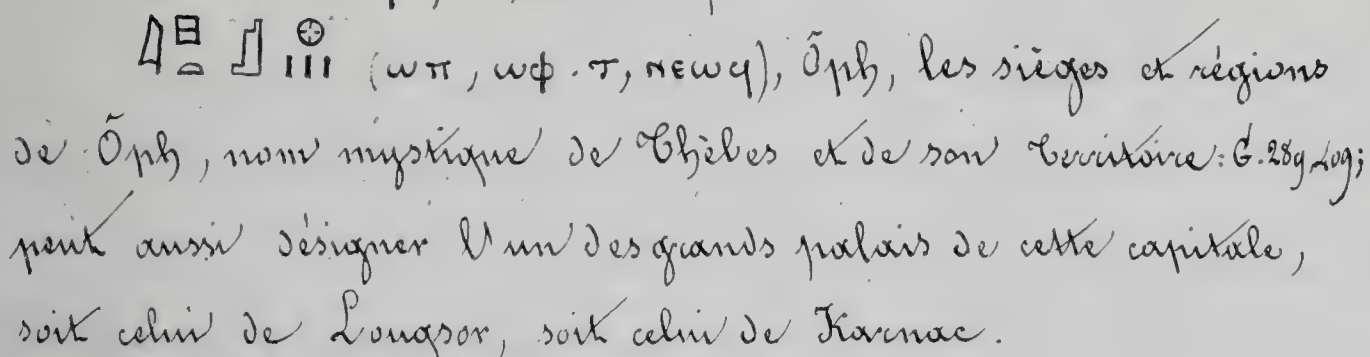 (ⲱⲡ, ⲱⲫ.ⲧ, ⲛⲉⲱϥ), Ōph, les sièges et régions
de Ōph, nom mystique de Thèbes et de son territoire: G. 289,
peut aussi désigner l'un des grands palais de cette capitale,
soit celui de Louqsor, soit celui de Karnac.